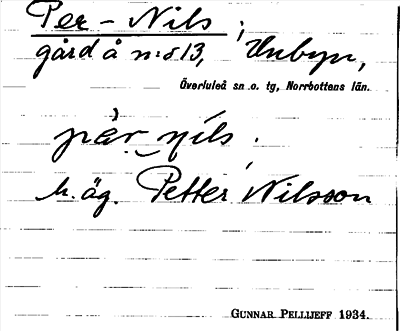 Per - Nils ;
gård å n:o 13, Unbyn,
Överluleå sn o. tg, Norrbottens län.
pàr nils.
h. äg. Petter Nilsson
GUNNAR PELLIJEFF 1934.